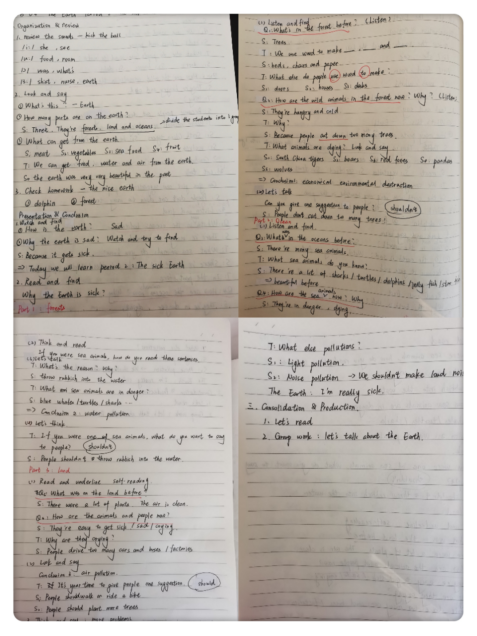 Organization & Review
1. review the sounds - hit the ball
/ɜː/ food, room
2. Look and say
① What is this? - Earth
② How many parts are on the earth?
S: Three. They're forests, land and oceans.
③ What can get from the earth?
S1: meat S2: vegetables S3: sea food S4: fruit
T: We can get food, water and air from the earth.
So the earth was very very beautiful in the past.
3. Check homework - the nice earth
① dolphin ② forest
Presentation &
1. Watch and find
① How is the earth? Sad
② Why the earth is sad? Watch and try to find
S: Because it gets sick.
→ Today we will learn period 2: The sick Earth
2. Read and find
Why the Earth is sick?
Part 1: forests
(1) Listen and find
Q1: What's in the forest before? (Listen)
S: Trees
T: We use wood to make __, __ and __.
S: beds, chairs and paper.
T: What else do people use wood to make?
S1: doors S2: boxes S3: desks
Q2: How are the wild animals in the forest now? Why? (Listen)
S: They're hungry and sad
T: Why?
S: Because people cut down too many trees.
T: What animals are dying? Look and say
S1: South China tigers S2: bears S3: red trees S4: pandas
S5: wolves
=> Conclusion1: environmental destruction
(2) Let's talk
Can you give me suggestion to people? shouldn't
S: People don't cut down too many trees!
Part 2: Ocean
(1) Listen and find
Q1: What was in the oceans before?
S: There're many sea animals.
T: What sea animals do you know?
S: There're a lot of sharks / turtles / dolphins / jelly fish
=> beautiful before
Q2: How are the sea animals now? Why
S: They're in danger, dying
(2) Think and read
If you were sea animals, how do you read these sentences
(3) Let's talk
T: What's the reason? Why?
S: throw rubbish into the water
T: What are sea animals are in danger?
S: blue whales / turtles / sharks...
=> Conclusion 2: water pollution
(4) Let's think
T: If you were one of sea animals, what do you want to say
to people? shouldn't
S: People shouldn't throw rubbish into the water
Part 3: land
(1) Read and underline self-reading
Q1: What was on the land before?
S: There were a lot of plants. The air is clean.
Q2: How are the animals and people now?
S: They're easy to get sick / sad / crying
T: Why are they crying?
S: People drive too many cars and buses / factories
(2) Look and say
Conclusion 3: air pollution
T: It's your time to give people one suggestion. should
S1: People should walk or ride a bike
S2: People should plant more trees
T: What else pollutions?
S1: Light pollution.
S2: Noise pollution → We shouldn't make loud
The Earth: I'm really sick.
Consolidation & Production.
1. Let's read
2. Group work: let's talk about the Earth